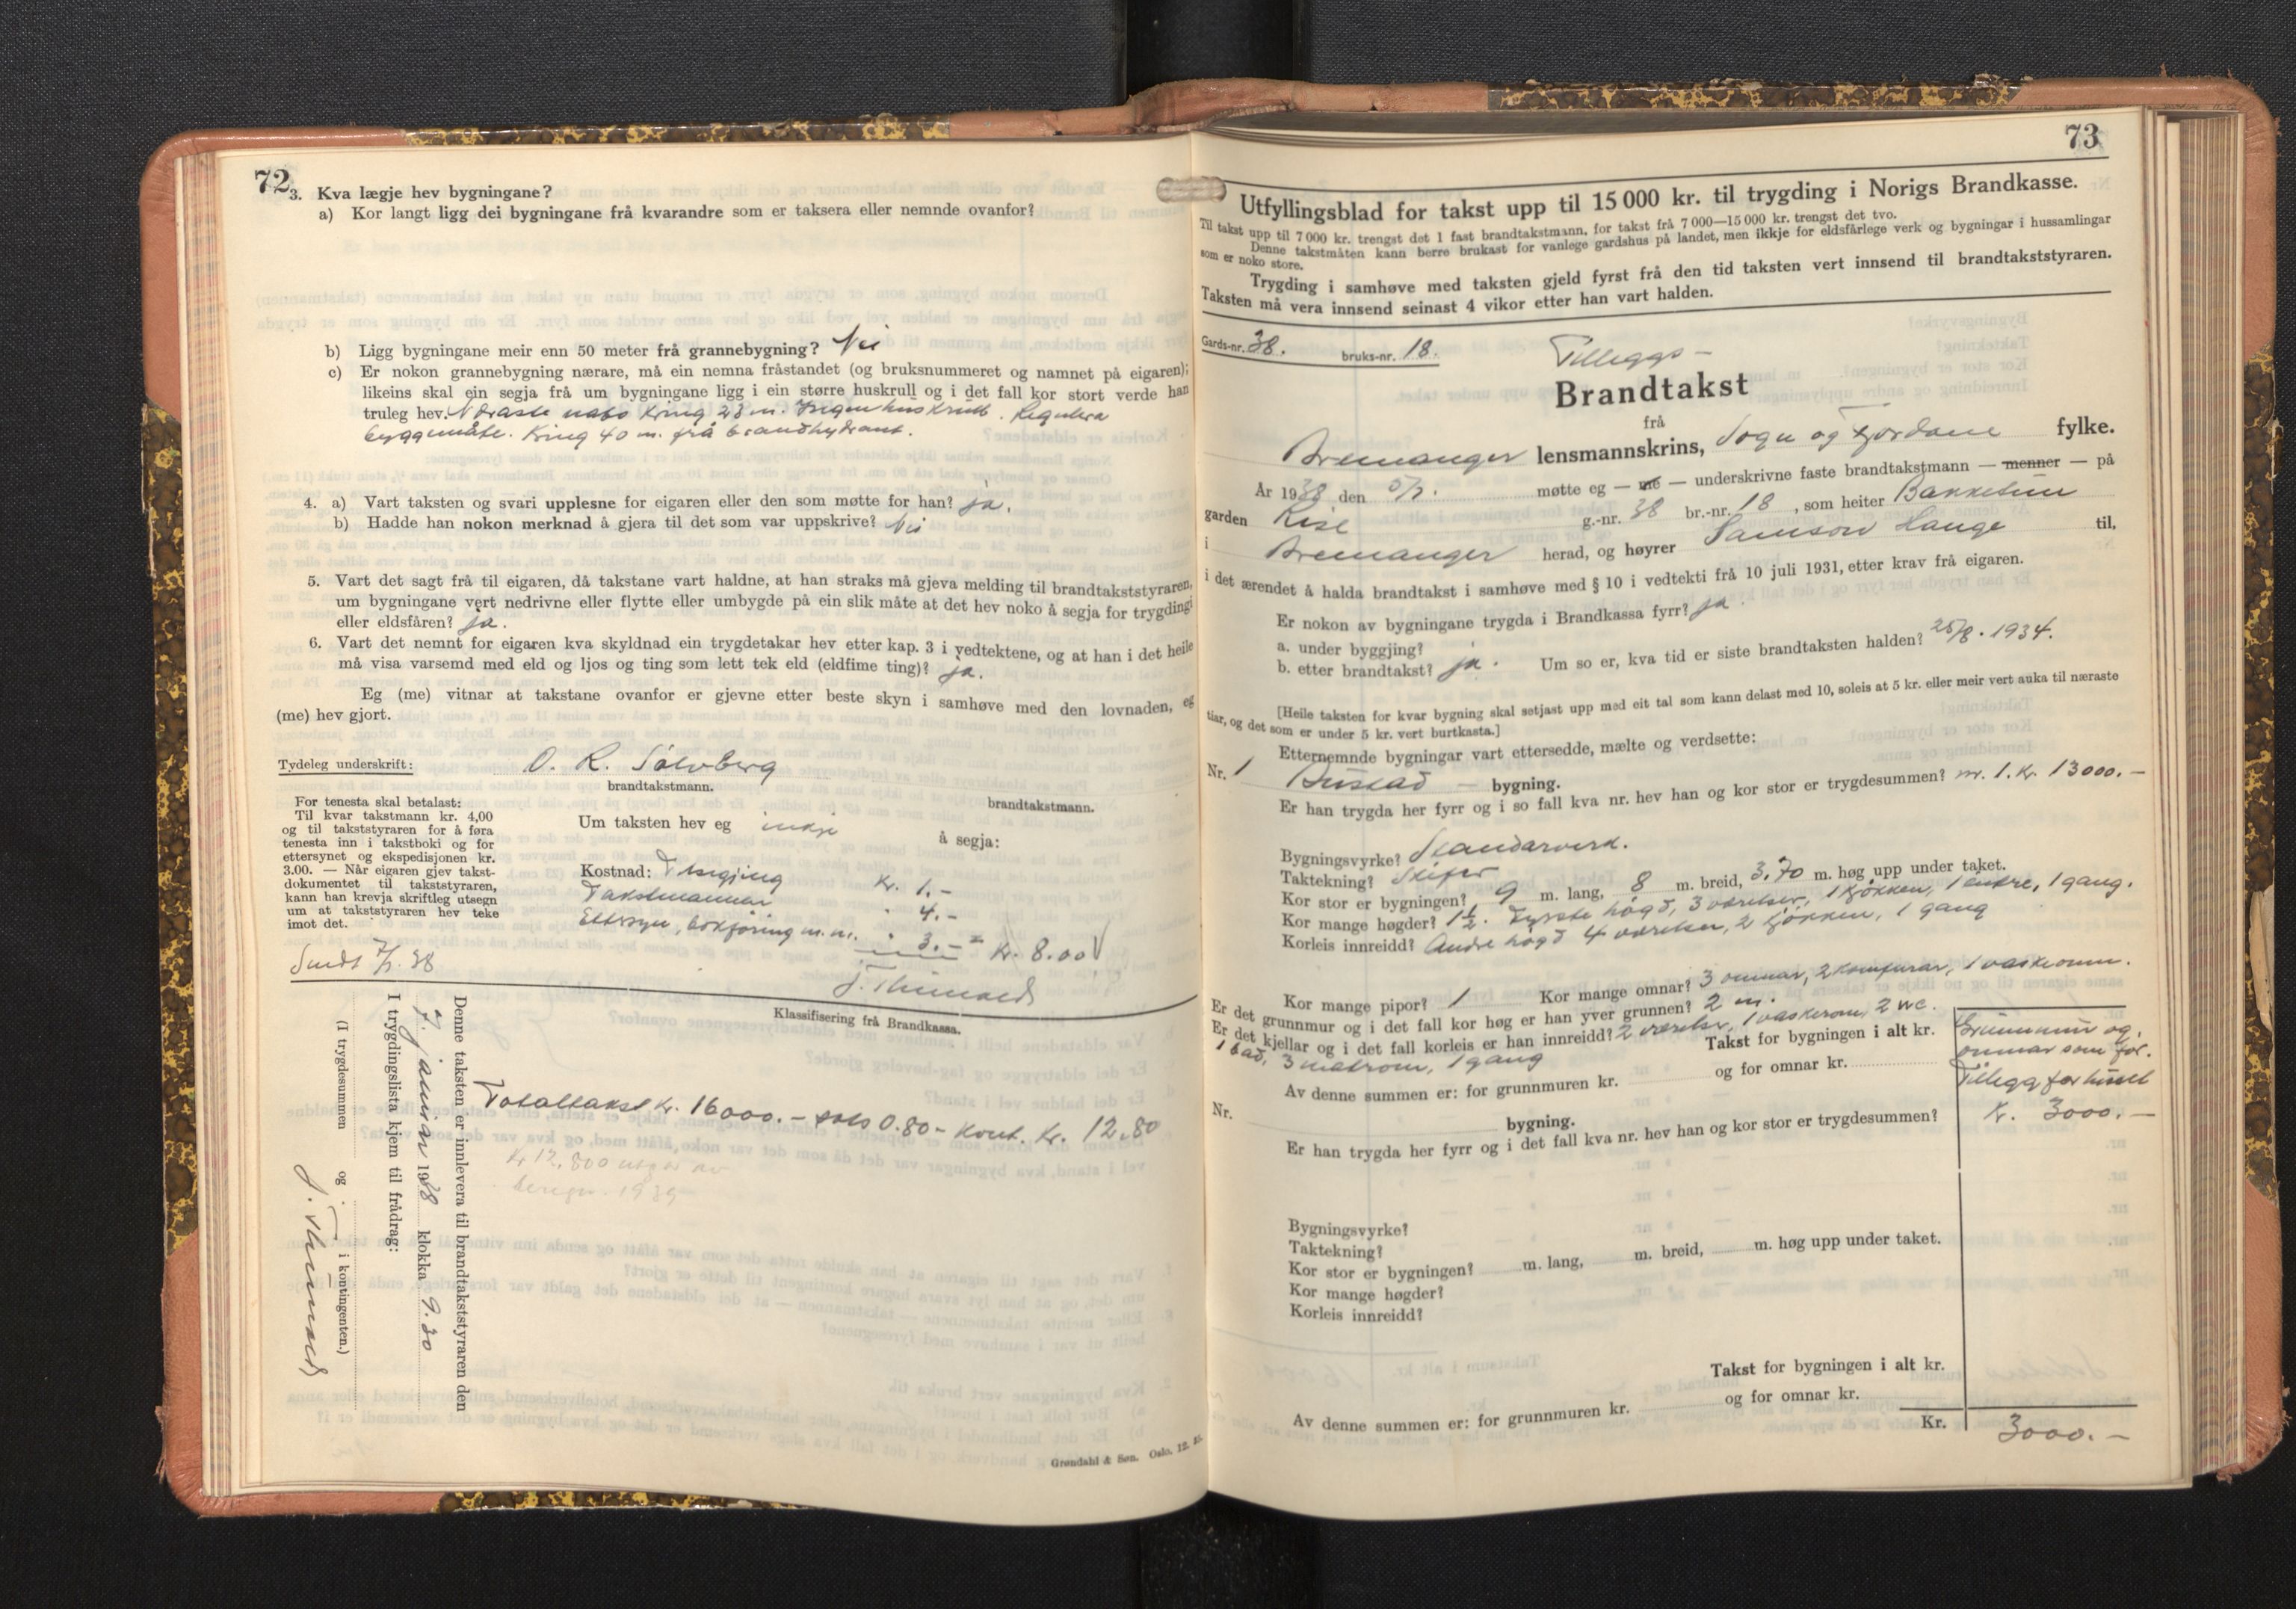 72
3. Kva lægje hev bygningane?
a) Kor langt ligg dei bygningane frå kvarandre som er taksera eller nemnde ovanfor?
b) Ligg bygningane meir enn 50 meter frå grannebygning? Nei
c) Er nokon grannebygning nærare, må ein nemna fråstandet (og bruksnummeret og namnet på eigaren);
likeins skal ein segja frå um bygningane ligg i ein større huskrull og i det fall kor stort verde han
truleg hev. Næraste nabo kring 23 m. Ingen huskrull. Regulera
byggemåte. Kring 40 m. frå brandhydrant.
4. a) Vart taksten og svari upplesne for eigaren eller den som møtte for han? ja.
b) Hadde han nokon merknad å gjera til det som var uppskrive? Nei
5. Vart det sagt frå til eigaren, då takstane vart haldne, at han straks må gjeva melding til brandtakststyraren,
um bygningane vert nedrivne eller flytte eller umbygde på ein slik måte at det hev noko å segja for trygdingi
eller eldsfåren? ja.
6. Vart det nemnt for eigaren kva skyldnad ein trygdetakar hev etter kap. 3 i vedtektene, og at han i det heile
må visa varsemd med eld og ljos og ting som lett tek eld (eldfime ting)? ja.
Eg (me) vitnar at takstane ovanfor er gjevne etter beste skyn i samhøve med den lovnaden, eg
(me) hev gjort.
Tydeleg underskrift: O. R. Solvberg
brandtakstmann. brandtakstmann.
For tenesta skal betalast:
Til kvar takstmann kr. 4,00
og til takststyraren for å føra
tenesta inn i takstboki og for
ettersynet og ekspedisjonen kr.
3.00. — Når eigaren gjev takst-
dokumentet til takststyraren,
kann han krevja skriftleg utsegn
um at takststyraren hev teke
imot det.
Um taksten hev eg inkje å segja:
Kostnad: Utsegjing Kr. 1.-
Takstmannar " 4.-
Ettersyn, bokføring m.m. " 3.- = Kr. 8.00
7/1. 38
Klassifisering frå Brandkassa.
Denne taksten er innlevera til brandtakststyraren den
7. januar 1938 klokka 9.30
I trygdingslista kjem til frådrag:
(I trygdesummen og i kontingenten.)
Totaltakst kr. 16000.- sats 0.80 - kont. kr. 12.80
Grøndahl & Søn. Oslo. 12.
73
Utfyllingsblad for takst upp til 15 000 kr. til trygding i Norigs Brandkasse.
Til takst upp til 7 000 kr. trengst det 1 fast brandtakstmann, for takst frå 7 000—15 000 kr. trengst det tvo.
Denne takstmåten kann berre brukast for vanlege gardshus på landet, men ikkje for eldsfårlege verk og bygningar i hussamlingar
som er noko store.
Trygding i samhøve med taksten gjeld fyrst frå den tid taksten vert innsend til brandtakststyraren.
Taksten må vera innsend seinast 4 vikor etter han vart halden.
Gards-nr. 38. bruks-nr. 18.
Tilleggs-
Brandtakst
frå
Bremanger lensmannskrins, Sogn og Fjordane fylke.
År 1938 den 5/1. møtte eg — me — underskrivne faste brandtakstmann — menner — på
garden Rise g.-nr. 38 br.-nr. 18, som heiter Bakketun
i Bremanger herad, og høyrer Samson Hauge til,
i det ærendet å halda brandtakst i samhøve med § 10 i vedtekti frå 10 juli 1931, etter krav frå eigaren.
Er nokon av bygningane trygda i Brandkassa fyrr? ja
a. under byggjing?
b. etter brandtakst? ja. Um so er, kva tid er siste brandtaksten halden? 25/8. 1934.
[Heile taksten for kvar bygning skal setjast upp med eit tal som kann delast med 10, soleis at 5 kr. eller meir vert auka til næraste
tiar, og det som er under 5 kr. vert burtkasta.]
Etternemnde bygningar vart ettersedde, mælte og verdsette:
Nr. 1 Bustad — bygning.
Er han trygda her fyrr og i so fall kva nr. hev han og kor stor er trygdesummen? nr. 1. Kr. 13000.-
Bygningsvyrke? Standarverk.
Taktekning? Skifer
Kor stor er bygningen? 9 m. lang, 8 m. breid, 3,70 m. høg upp under taket.
Kor mange høgder? 1½. Fyrste høgd, 3 værelser, 1 kjøkken, 1 entre, 1 gang.
Korleis innreidd? Andre høgd 4 værelser, 2 kjøkken, 1 gang
Kor mange pipor? 1 Kor mange omnar? 3 omnar, 2 komfurar, 1 vaskeomn.
Er det grunnmur og i det fall kor høg er han yver grunnen? 2 m.
Er det kjellar og i det fall korleis er han innreidd? 2 værelse, 1 vaskerom, 2 wc.
1 bad, 3 matrom, 1 gang
Takst for bygningen i alt kr.
Av denne summen er: for grunnmuren kr. og for omnar kr.
Grunnmur og
omnar som før.
Tillegg for huset
Kr. 3000.-
Nr. bygning.
Er han trygda her fyrr og i det fall kva nr. hev han og kor stor er trygdesummen?
Bygningsvyrke?
Taktekning?
Kor stor er bygningen? m. lang, m. breid, m. høg upp under taket.
Kor mange høgder?
Korleis innreidd?
Takst for bygningen i alt kr.
Av denne summen er: for grunnmuren kr. og for omnar kr.
Kr. 3000.-